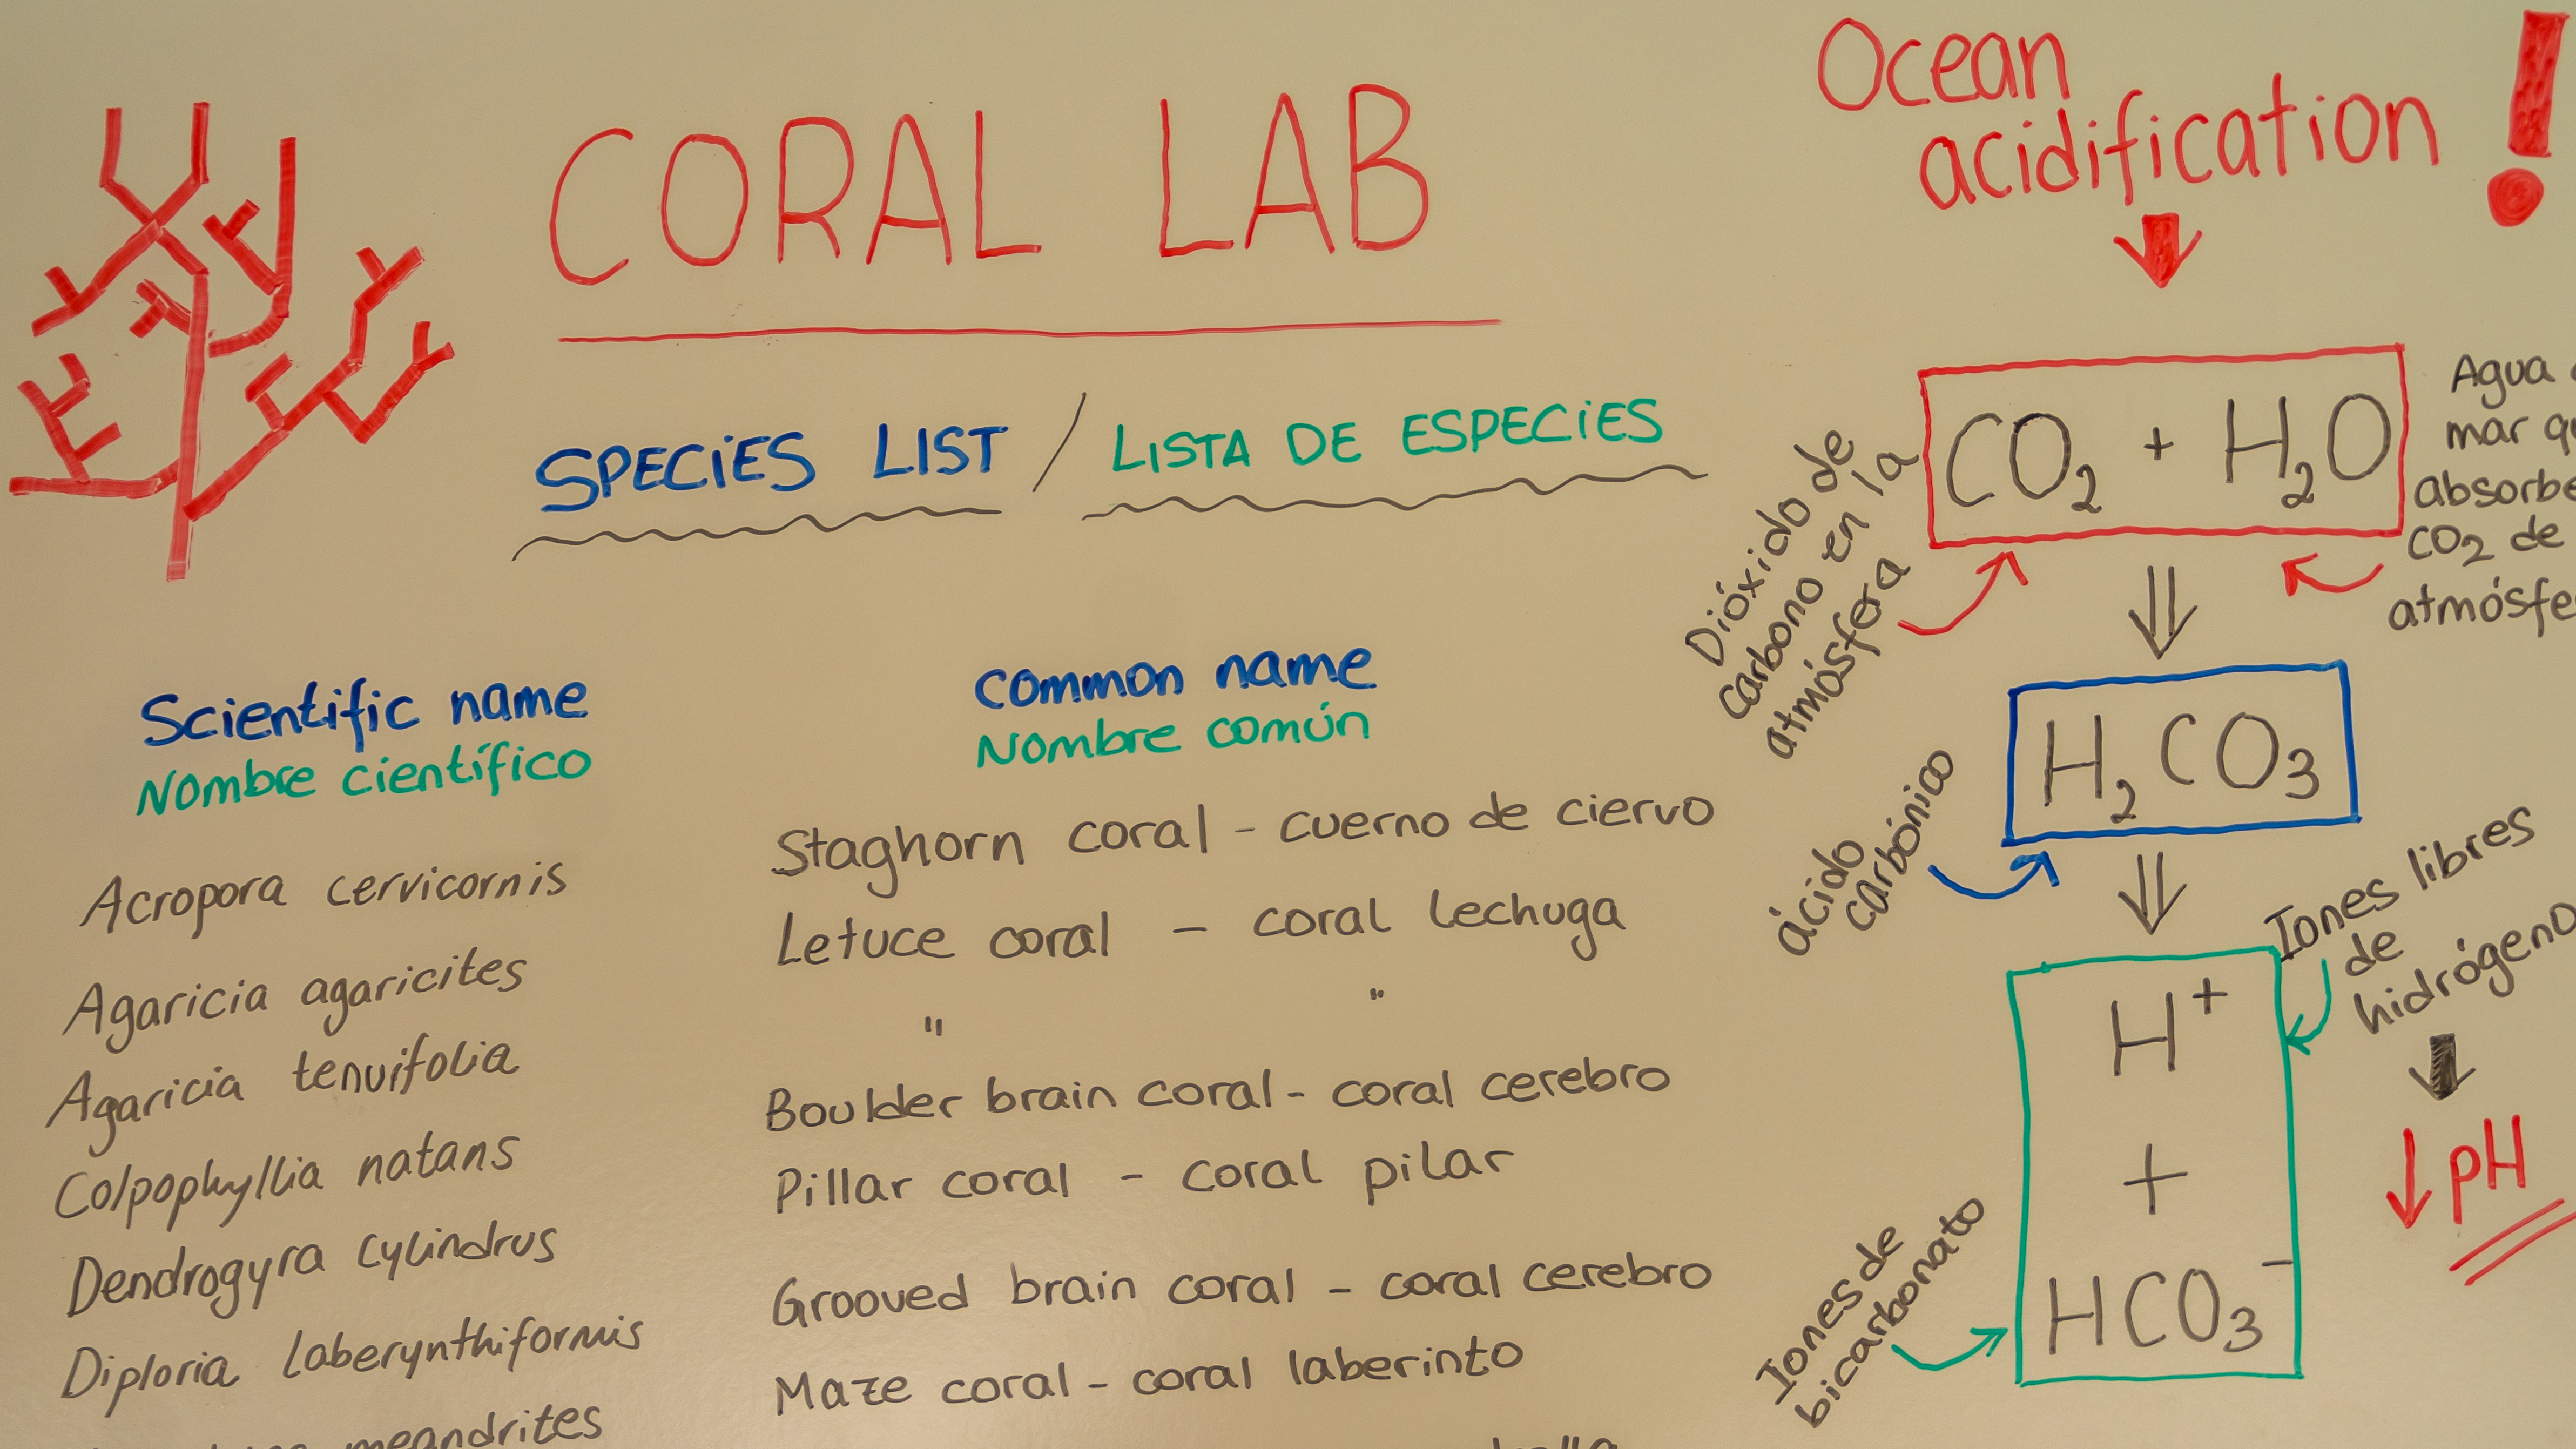 CORAL LAB
SPECIES LIST / LISTA DE ESPECIES
Scientific name
Nombre científico
Acropora cervicornis
Agaricia agaricites
Agaricia tenuifolia
Colpophyllia natans
Dendrogyra cylindrus
Diploria laberynthiformis
meandrites
Common name
Nombre común
Staghorn coral - cuerno de ciervo
Letuce coral - coral lechuga
" "
Boulder brain coral - coral cerebro
Pillar coral - coral pilar
Grooved brain coral - coral cerebro
Maze coral - coral laberinto
Ocean
acidification !
CO2 + H2O
Dióxido de
carbono en la
atmósfera
Agua
mar
CO2 de
H2CO3
ácido
carbónico
H+
+
HCO3-
Iones libres
de
hidrógeno
↓ pH
Iones de
bicarbonato